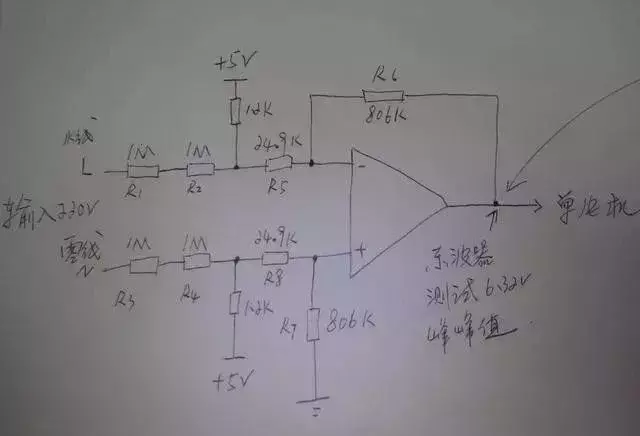 +5V
R6
806K
12K
火线
L
1M
1M
24.9K
R1
R2
R5
-
输入220V
单片机
零线
N
1M
1M
24.9K
+
R3
R4
R8
示波器
测试6.32V
峰峰值
1.2K
R7
806K
+5V